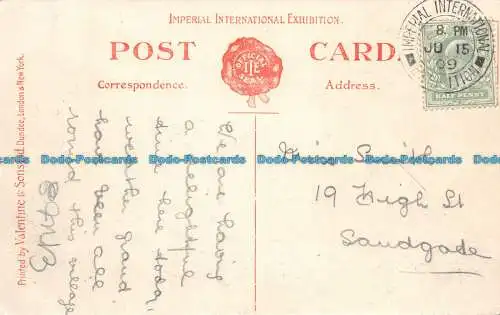 IMPERIAL INTERNATIONAL EXHIBITION.
POST CARD.
OFFICIAL
IIE
SEAL
Correspondence.
Address.
IMPERIAL INTERNATIONAL
8. PM
JU 15
09
HALF PENNY
Printed by Valentine & Sons Ltd. Dundee, London & New York.
We are having
a delightful
time here today,
weather grand
have been all
round this village
Miss Smith
19 High St
Sandgate
Dodo-Postcards Dodo-Postcards Dodo-Postcards Dodo-Postcards Dodo-Postcards